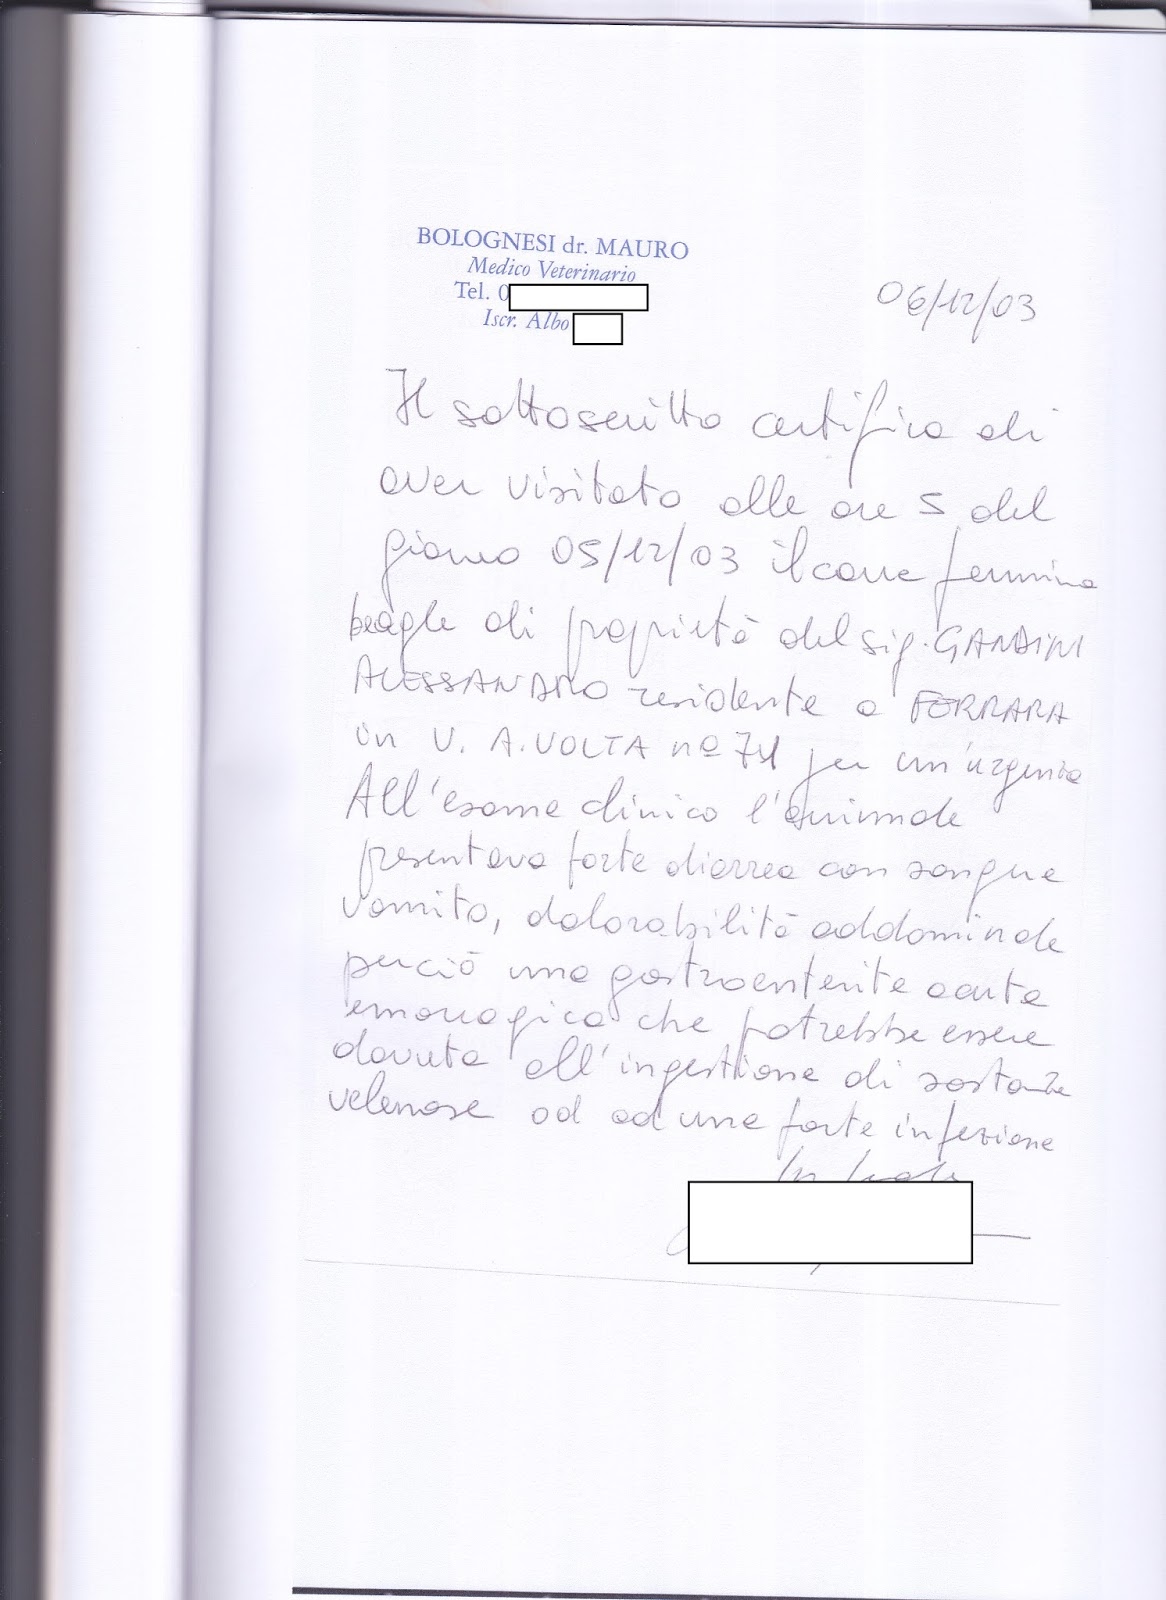 BOLOGNESI dr. MAURO
Medico Veterinario
Tel. 0
Iscr. Albo
06/12/03
Il sottoscritto certifica di
aver visitato alle ore 5 del
giorno 05/12/03 il cane femmina
beagle di proprietà del sig. GANDINI
ALESSANDRO residente a FERRARA
in V. A. VOLTA nº per un'urgenza
All'esame clinico l'animale
presentava forte diarrea con sangue
vomito, dolorabilità addominale
perciò una gastroenterite acuta
emorragica che potrebbe essere
dovuta all'ingestione di sostanze
velenose od ad una forte infezione
In fede